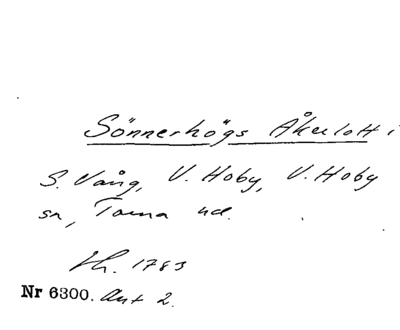 Sönnerhögs Åkerlott i
S. Vång, V. Hoby, V. Hoby
sn, Torna hd.
Lh. 1783
Nr 6300. Akt 2.